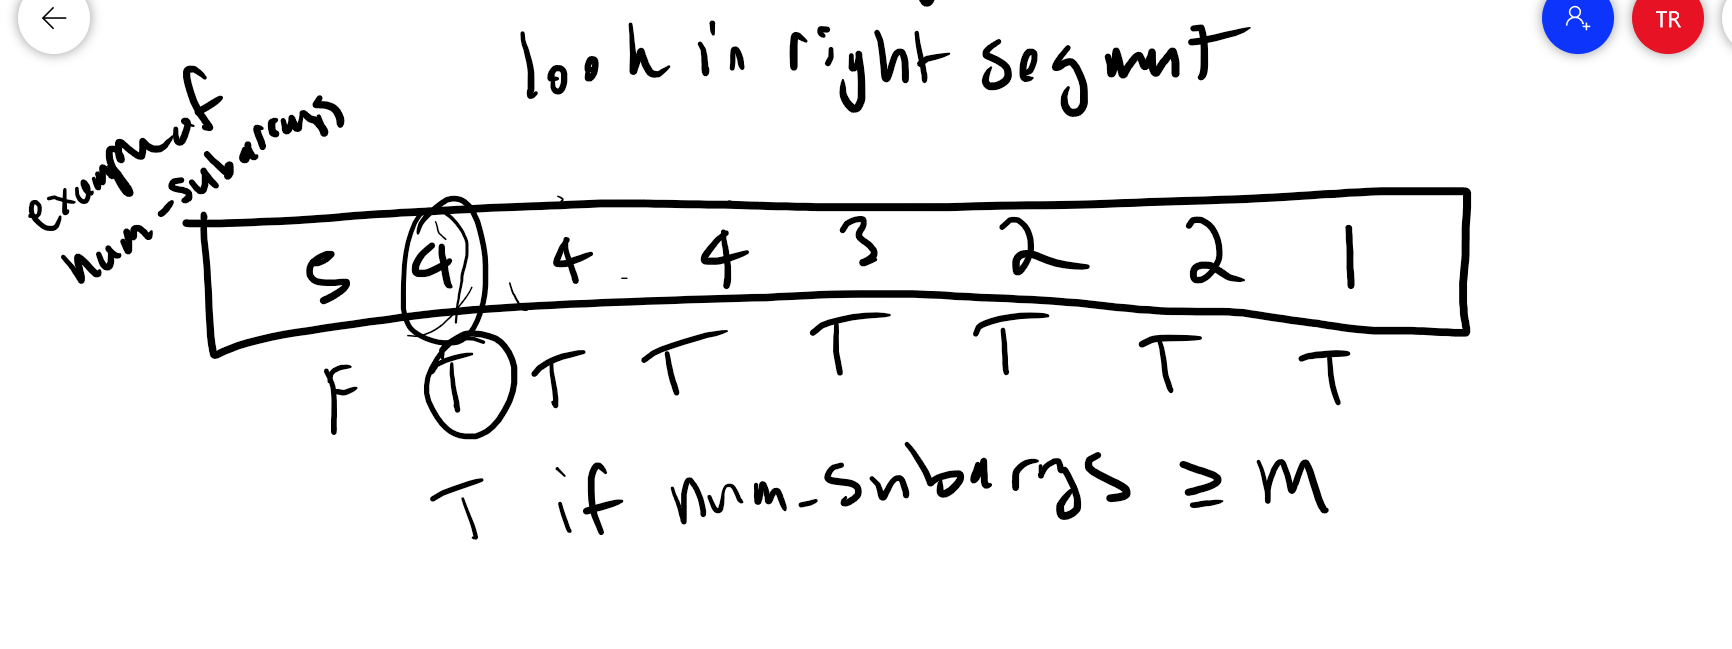 TR
look in right segmnt
example of
num_subarrays
5 4 4 4 3 2 2 1
F T T T T T T T
T if num_subarrys ≥ m